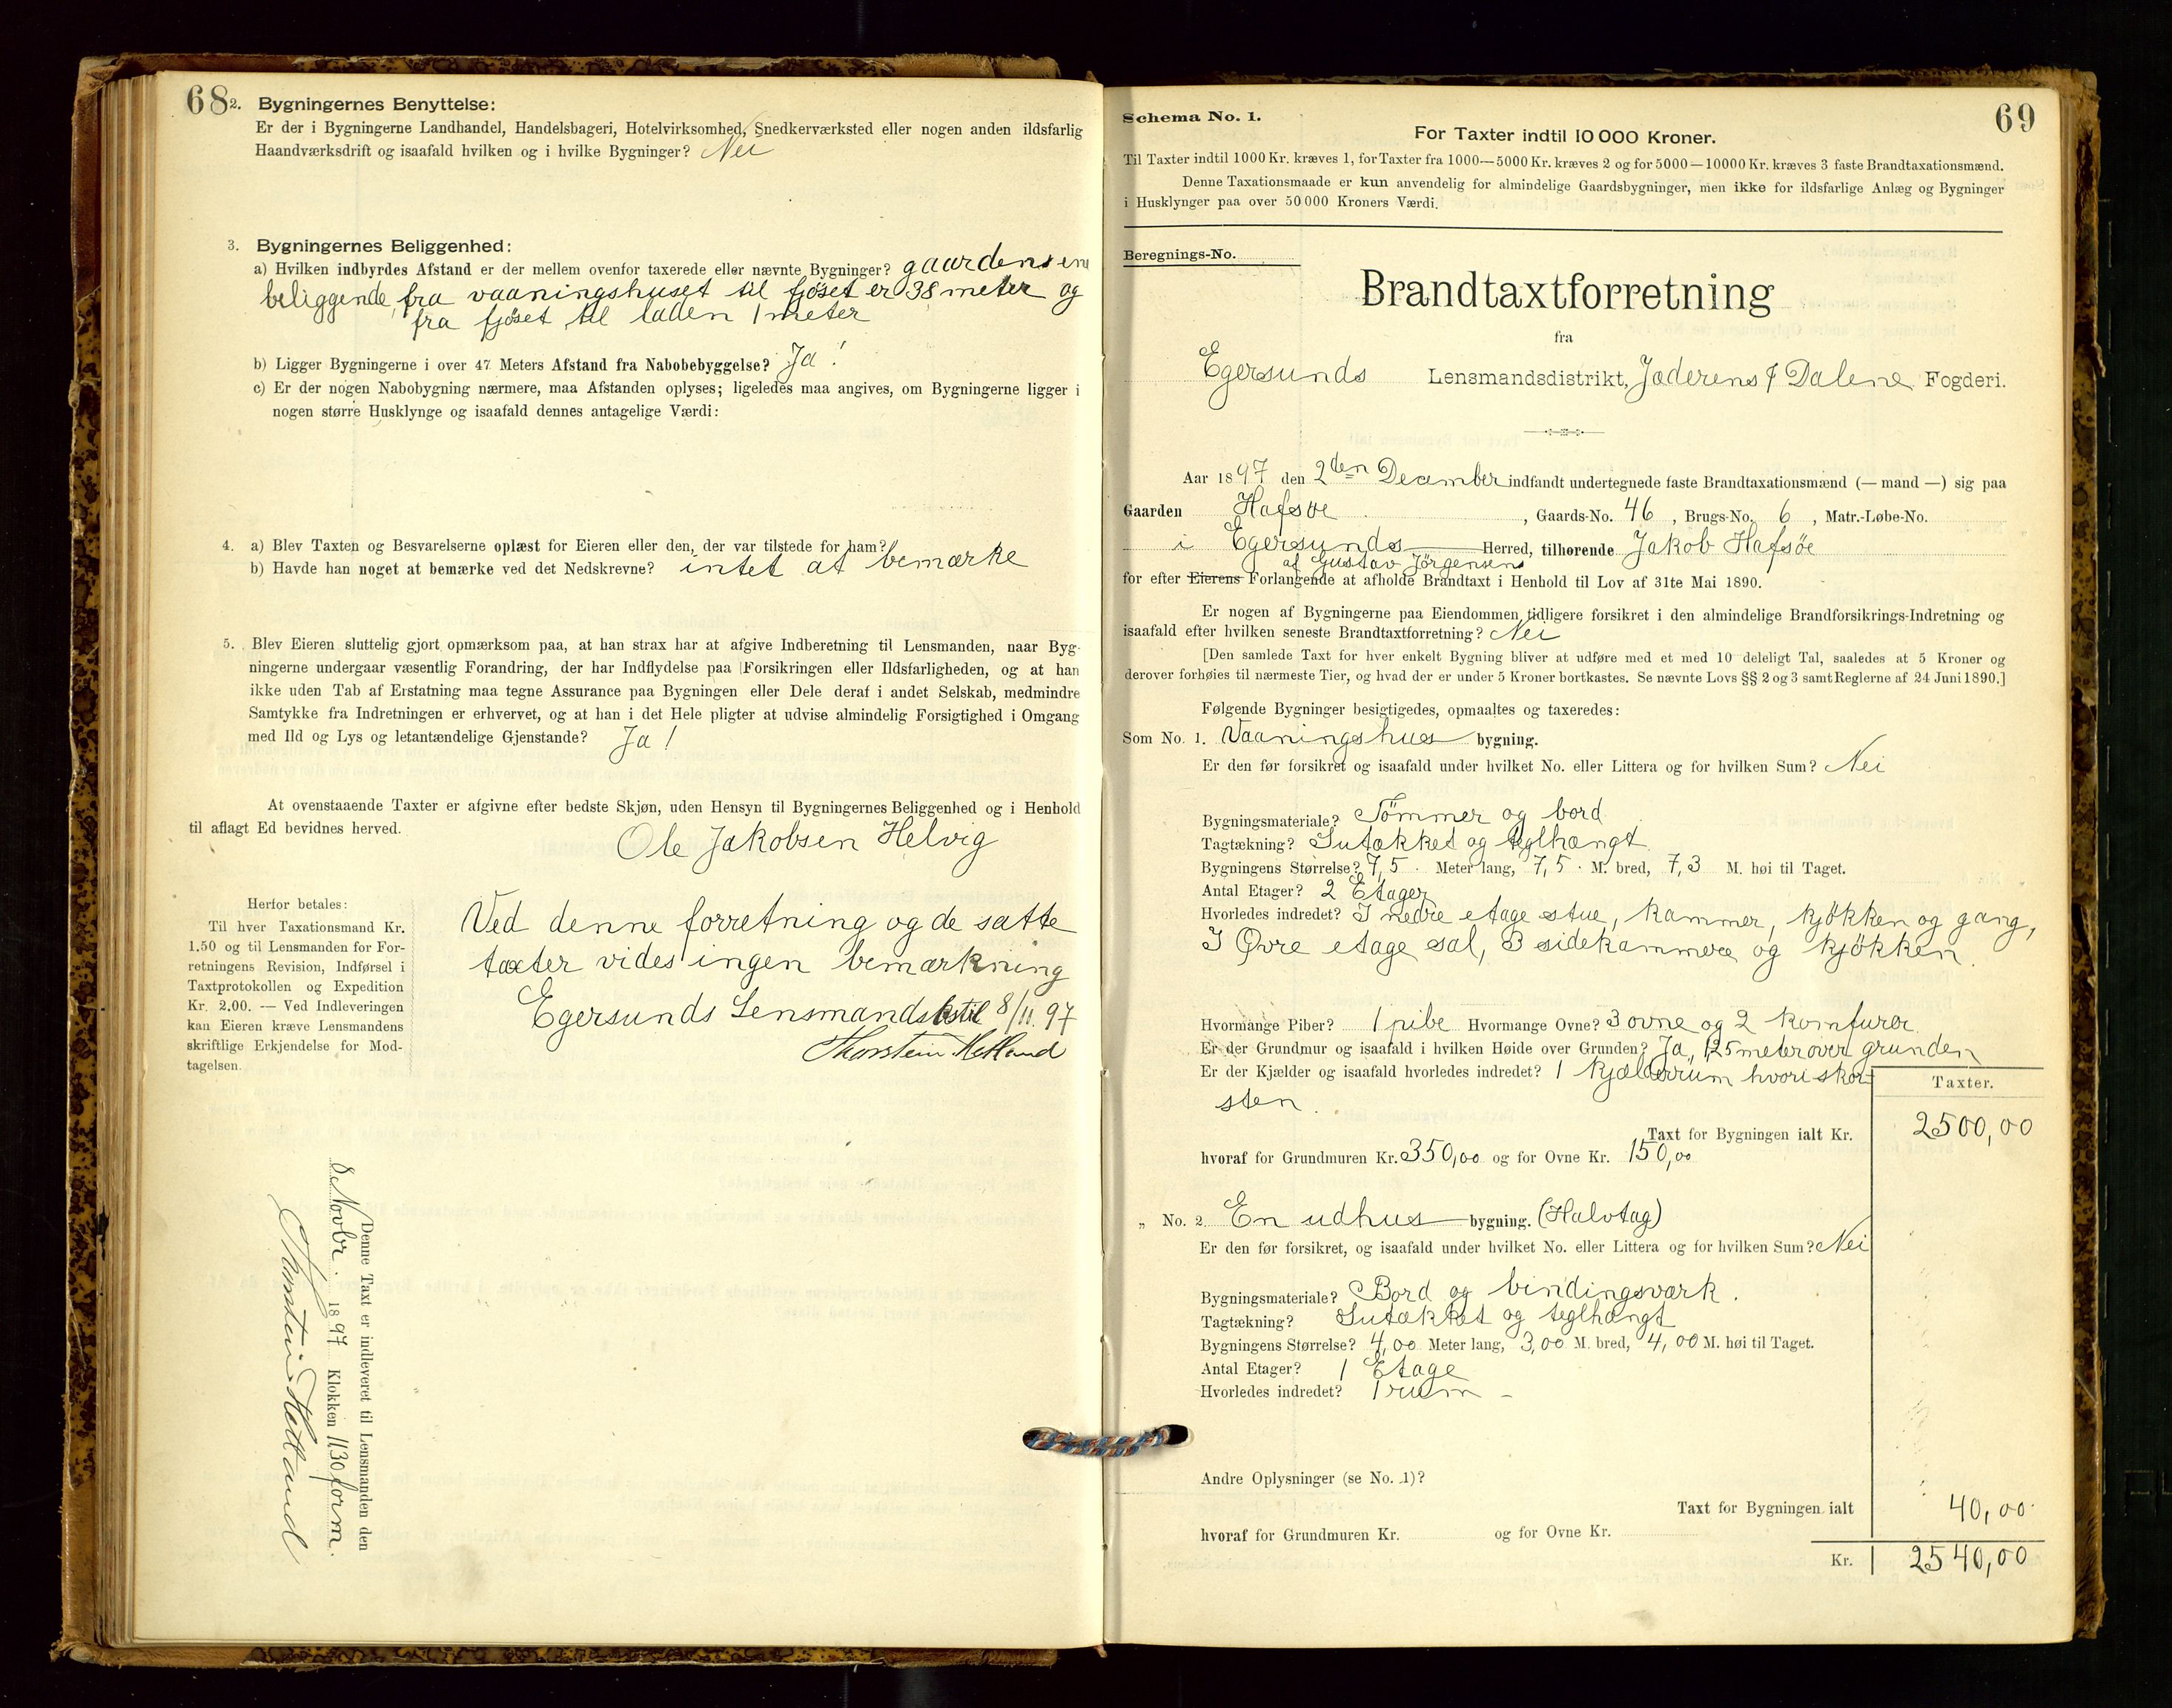 68
2. Bygningernes Benyttelse:
Er der i Bygningerne Landhandel, Handelsbageri, Hotelvirksomhed, Snedkerværksted eller nogen anden ildsfarlig
Haandværksdrift og isaafald hvilken og i hvilke Bygninger? Nei
3. Bygningernes Beliggenhed:
a) Hvilken indbyrdes Afstand er der mellem ovenfor taxerede eller nævnte Bygninger? gaardens en
beliggende fra vaaningshuset til fjöset er 38 meter og
fra fjöset til laden 1 meter
b) Ligger Bygningerne i over 47 Meters Afstand fra Nabobebyggelse? Ja!
c) Er der nogen Nabobygning nærmere, maa Afstanden oplyses; ligeledes maa angives, om Bygningerne ligger i
nogen større Husklynge og isaafald dennes antagelige Værdi:
4. a) Blev Taxten og Besvarelserne oplæst for Eieren eller den, der var tilstede for ham?
b) Havde han noget at bemærke ved det Nedskrevne? intet at bemærke
5. Blev Eieren sluttelig gjort opmærksom paa, at han strax har at afgive Indberetning til Lensmanden, naar Byg-
ningerne undergaar væsentlig Forandring, der har Indflydelse paa Forsikringen eller Ildsfarligheden, og at han
ikke uden Tab af Erstatning maa tegne Assurance paa Bygningen eller Dele deraf i andet Selskab, medmindre
Samtykke fra Indretningen er erhvervet, og at han i det Hele pligter at udvise almindelig Forsigtighed i Omgang
med Ild og Lys og letantændelige Gjenstande? Ja!
At ovenstaaende Taxter er afgivne efter bedste Skjøn, uden Hensyn til Bygningernes Beliggenhed og i Henhold
til aflagt Ed bevidnes herved.
Ole Jakobsen Helvig
Herfor betales:
Til hver Taxationsmand Kr.
1.50 og til Lensmanden for For-
retningens Revision, Indførsel i
Taxtprotokollen og Expedition
Kr. 2.00. — Ved Indleveringen
kan Eieren kræve Lensmandens
skriftlige Erkjendelse for Mod-
tagelsen.
Ved denne forretning og de satte
taxter vides ingen bemærkning
Egersunds Lensmandsbstil 8/11.97
Thorstein Hetland
Denne Taxt er indleveret til Lensmanden den
8 Novbr. 1897 Klokken 1130 form.
Thorstein Hetland
69
Schema No. 1.
For Taxter indtil 10 000 Kroner.
Til Taxter indtil 1000 Kr. kræves 1, for Taxter fra 1000—5000 Kr. kræves 2 og for 5000—10000 Kr. kræves 3 faste Brandtaxationsmænd.
Denne Taxationsmaade er kun anvendelig for almindelige Gaardsbygninger, men ikke for ildsfarlige Anlæg og Bygninger
i Husklynger paa over 50 000 Kroners Værdi.
Beregnings-No.
Brandtaxtforretning
fra
Egersunds Lensmandsdistrikt, Jæderens & Dalene Fogderi.
Aar 1897 den 2den December indfandt undertegnede faste Brandtaxationsmænd (— mand —) sig paa
Gaarden Hafsøe, Gaards-No. 46, Brugs-No. 6, Matr.-Løbe-No.
i Egersunds Herred, tilhørende Jakob Hafsøe
af Gustav Jörgensens
for efter Eierens Forlangende at afholde Brandtaxt i Henhold til Lov af 31te Mai 1890.
Er nogen af Bygningerne paa Eiendommen tidligere forsikret i den almindelige Brandforsikrings-Indretning og
isaafald efter hvilken seneste Brandtaxtforretning? Nei
[Den samlede Taxt for hver enkelt Bygning bliver at udføre med et med 10 deleligt Tal, saaledes at 5 Kroner og
derover forhøies til nærmeste Tier, og hvad der er under 5 Kroner bortkastes. Se nævnte Lovs §§ 2 og 3 samt Reglerne af 24 Juni 1890.]
Følgende Bygninger besigtigedes, opmaaltes og taxeredes:
Som No. 1. Vaaningshus bygning.
Er den før forsikret og isaafald under hvilket No. eller Littera og for hvilken Sum? Nei
Bygningsmateriale? Tömmer og bord
Tagtækning? Sutækket og teglhængt
Bygningens Størrelse? 7,5 Meter lang, 7,5 M. bred, 7,3 M. høi til Taget.
Antal Etager? 2 Etager
Hvorledes indredet? I nedre etage stue, kammer, kjökken og gang,
I Øvre etage sal, 3 sidekammere og kjökken.
Hvormange Piber? 1 pibe Hvormange Ovne? 3 ovne og 2 komfurer
Er der Grundmur og isaafald i hvilken Høide over Grunden? Ja, 1,25 meter over grunden
Er der Kjælder og isaafald hvorledes indredet? 1 kjælderrum hvori skor-
sten.
Taxter.
Taxt for Bygningen ialt Kr. 2500,00
hvoraf for Grundmuren Kr. 350,00 og for Ovne Kr. 150,00
„ No. 2. En udhus bygning. (Halvtag)
Er den før forsikret, og isaafald under hvilket No. eller Littera og for hvilken Sum? Nei
Bygningsmateriale? Bord og bindingsværk.
Tagtækning? Sutækket og teglhængt
Bygningens Størrelse? 4,00 Meter lang, 3,00 M. bred, 4,00 M. høi til Taget.
Antal Etager? 1 Etage
Hvorledes indredet? 1 rum –
Andre Oplysninger (se No. 1)?
Taxt for Bygningen ialt 40,00
hvoraf for Grundmuren Kr. og for Ovne Kr.
Kr. 2540,00